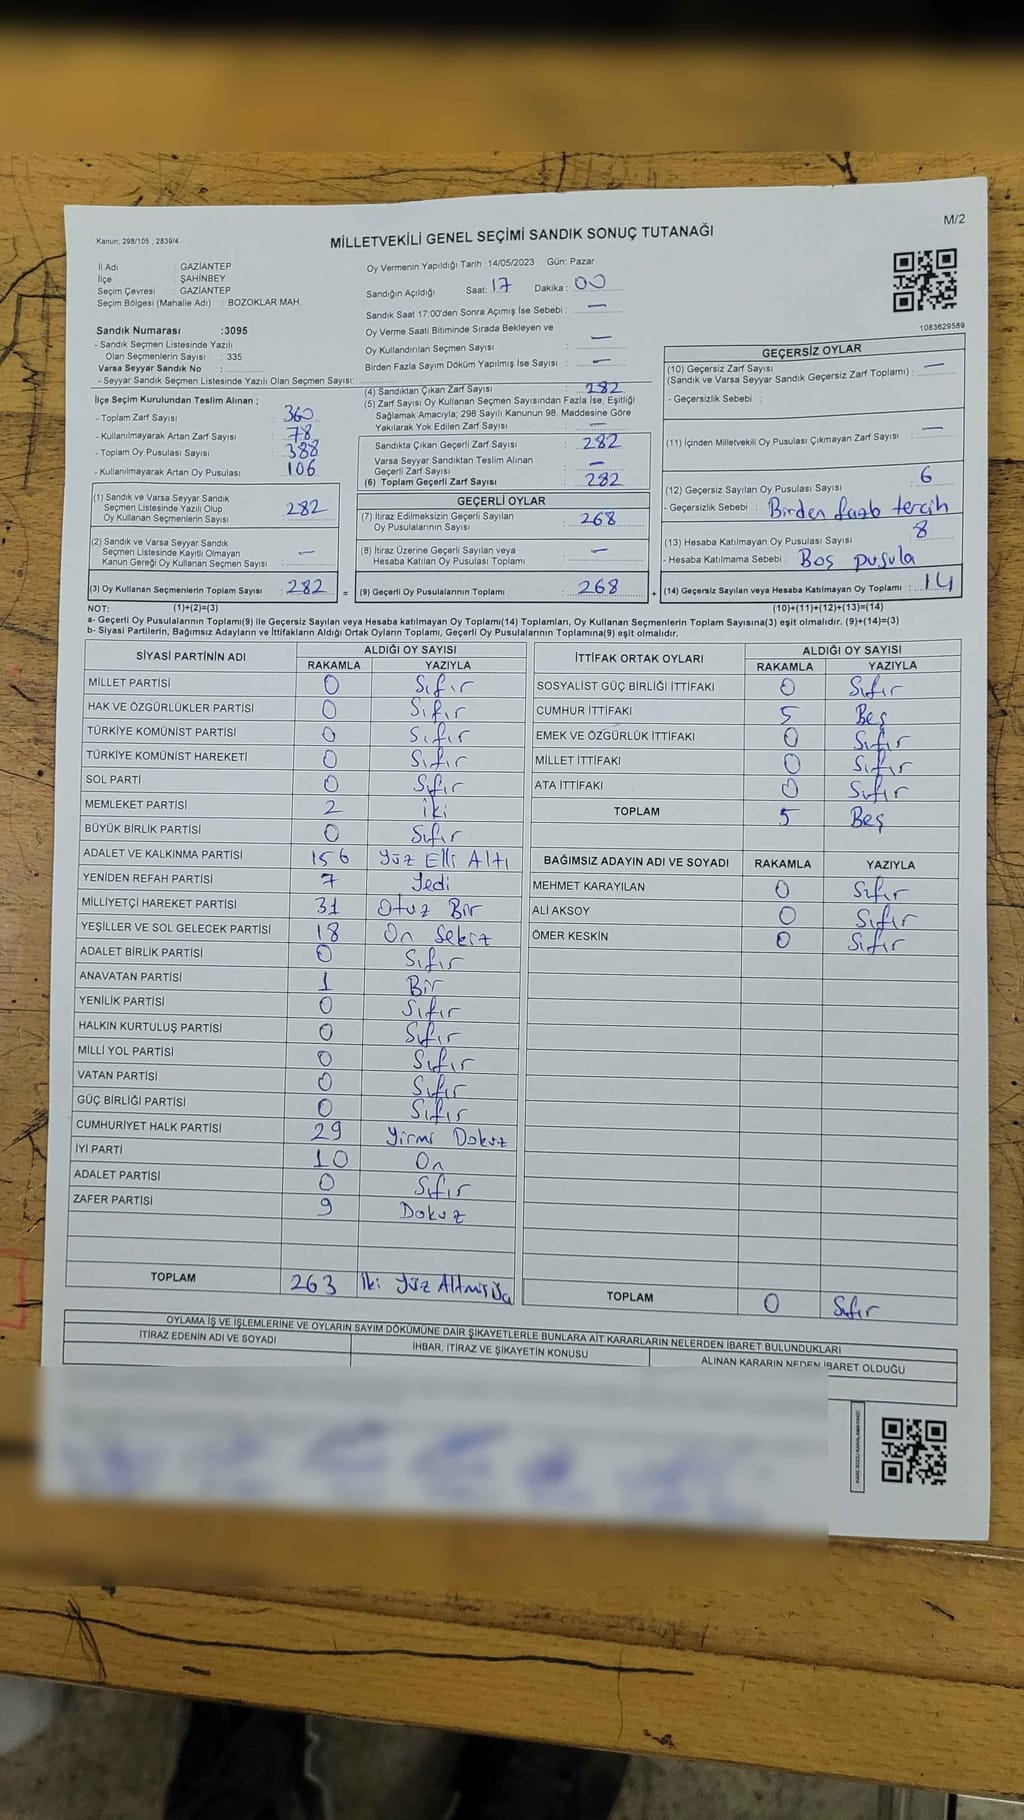 M/2
Kanun: 298/105 , 2839/4
MİLLETVEKİLİ GENEL SEÇİMİ SANDIK SONUÇ TUTANAĞI
İl Adı : GAZİANTEP
İlçe : ŞAHİNBEY
Seçim Çevresi : GAZİANTEP
Seçim Bölgesi (Mahalle Adı) : BOZOKLAR MAH.
Sandık Numarası :3095
- Sandık Seçmen Listesinde Yazılı
Olan Seçmenlerin Sayısı : 335
Varsa Seyyar Sandık No :
- Seyyar Sandık Seçmen Listesinde Yazılı Olan Seçmen Sayısı:
Oy Vermenin Yapıldığı Tarih :14/05/2023 Gün: Pazar
Sandığın Açıldığı Saat: 17 Dakika : 00
Sandık Saat 17:00'den Sonra Açımış İse Sebebi : —
Oy Verme Saati Bitiminde Sırada Bekleyen ve
Oy Kullandırılan Seçmen Sayısı : —
Birden Fazla Sayım Döküm Yapılmış İse Sayısı : —
1083629589
İlçe Seçim Kurulundan Teslim Alınan ;
- Toplam Zarf Sayısı : 360
- Kullanılmayarak Artan Zarf Sayısı : 78
- Toplam Oy Pusulası Sayısı : 388
- Kullanılmayarak Artan Oy Pusulası : 106
(1) Sandık ve Varsa Seyyar Sandık
Seçmen Listesinde Yazılı Olup
Oy Kullanan Seçmenlerin Sayısı : 282
(2) Sandık ve Varsa Seyyar Sandık
Seçmen Listesinde Kayıtlı Olmayan
Kanun Gereği Oy Kullanan Seçmen Sayısı : —
(3) Oy Kullanan Seçmenlerin Toplam Sayısı : 282 =
(4) Sandıktan Çıkan Zarf Sayısı : 282
(5) Zarf Sayısı Oy Kullanan Seçmen Sayısından Fazla İse, Eşitliği
Sağlamak Amacıyla; 298 Sayılı Kanunun 98. Maddesine Göre
Yakılarak Yok Edilen Zarf Sayısı : —
Sandıkta Çıkan Geçerli Zarf Sayısı : 282
Varsa Seyyar Sandıktan Teslim Alınan
Geçerli Zarf Sayısı : —
(6) Toplam Geçerli Zarf Sayısı : 282
GEÇERLİ OYLAR
(7) İtiraz Edilmeksizin Geçerli Sayılan
Oy Pusulalarının Sayısı : 268
(8) İtiraz Üzerine Geçerli Sayılan veya
Hesaba Katılan Oy Pusulası Toplamı : —
(9) Geçerli Oy Pusulalarının Toplamı : 268 +
GEÇERSİZ OYLAR
(10) Geçersiz Zarf Sayısı
(Sandık ve Varsa Seyyar Sandık Geçersiz Zarf Toplamı) : —
- Geçersizlik Sebebi :
(11) İçinden Milletvekili Oy Pusulası Çıkmayan Zarf Sayısı : —
(12) Geçersiz Sayılan Oy Pusulası Sayısı : 6
- Geçersizlik Sebebi : Birden fazla tercih
(13) Hesaba Katılmayan Oy Pusulası Sayısı : 8
- Hesaba Katılmama Sebebi : Boş pusula
(14) Geçersiz Sayılan veya Hesaba Katılmayan Oy Toplamı : 14
NOT: (1)+(2)=(3) (10)+(11)+(12)+(13)=(14)
a- Geçerli Oy Pusulalarının Toplamı(9) İle Geçersiz Sayılan veya Hesaba katılmayan Oy Toplamı(14) Toplamları, Oy Kullanan Seçmenlerin Toplam Sayısına(3) eşit olmalıdır. (9)+(14)=(3)
b- Siyasi Partilerin, Bağımsız Adayların ve İttifakların Aldığı Ortak Oyların Toplamı, Geçerli Oy Pusulalarının Toplamına(9) eşit olmalıdır.
SİYASİ PARTİNİN ADI ALDIĞI OY SAYISI
RAKAMLA YAZIYLA
MİLLET PARTİSİ 0 Sıfır
HAK VE ÖZGÜRLÜKLER PARTİSİ 0 Sıfır
TÜRKİYE KOMÜNİST PARTİSİ 0 Sıfır
TÜRKİYE KOMÜNİST HAREKETİ 0 Sıfır
SOL PARTİ 0 Sıfır
MEMLEKET PARTİSİ 2 iki
BÜYÜK BİRLİK PARTİSİ 0 Sıfır
ADALET VE KALKINMA PARTİSİ 156 Yüz Elli Altı
YENİDEN REFAH PARTİSİ 7 Yedi
MİLLİYETÇİ HAREKET PARTİSİ 31 Otuz Bir
YEŞİLLER VE SOL GELECEK PARTİSİ 18 On Sekiz
ADALET BİRLİK PARTİSİ 0 Sıfır
ANAVATAN PARTİSİ 1 Bir
YENİLİK PARTİSİ 0 Sıfır
HALKIN KURTULUŞ PARTİSİ 0 Sıfır
MİLLİ YOL PARTİSİ 0 Sıfır
VATAN PARTİSİ 0 Sıfır
GÜÇ BİRLİĞİ PARTİSİ 0 Sıfır
CUMHURİYET HALK PARTİSİ 29 Yirmi Dokuz
İYİ PARTİ 10 On
ADALET PARTİSİ 0 Sıfır
ZAFER PARTİSİ 9 Dokuz
TOPLAM 263 İki Yüz Altmış Üç
İTTİFAK ORTAK OYLARI ALDIĞI OY SAYISI
RAKAMLA YAZIYLA
SOSYALİST GÜÇ BİRLİĞİ İTTİFAKI 0 Sıfır
CUMHUR İTTİFAKI 5 Beş
EMEK VE ÖZGÜRLÜK İTTİFAKI 0 Sıfır
MİLLET İTTİFAKI 0 Sıfır
ATA İTTİFAKI 0 Sıfır
TOPLAM 5 Beş
BAĞIMSIZ ADAYIN ADI VE SOYADI RAKAMLA YAZIYLA
MEHMET KARAYILAN 0 Sıfır
ALİ AKSOY 0 Sıfır
ÖMER KESKİN 0 Sıfır
TOPLAM 0 Sıfır
OYLAMA İŞ VE İŞLEMLERİNE VE OYLARIN SAYIM DÖKÜMÜNE DAİR ŞİKAYETLERLE BUNLARA AİT KARARLARIN NELERDEN İBARET BULUNDUKLARI
İTİRAZ EDENİN ADI VE SOYADI İHBAR, İTİRAZ VE ŞİKAYETİN KONUSU ALINAN KARARIN NEDEN İBARET OLDUĞU